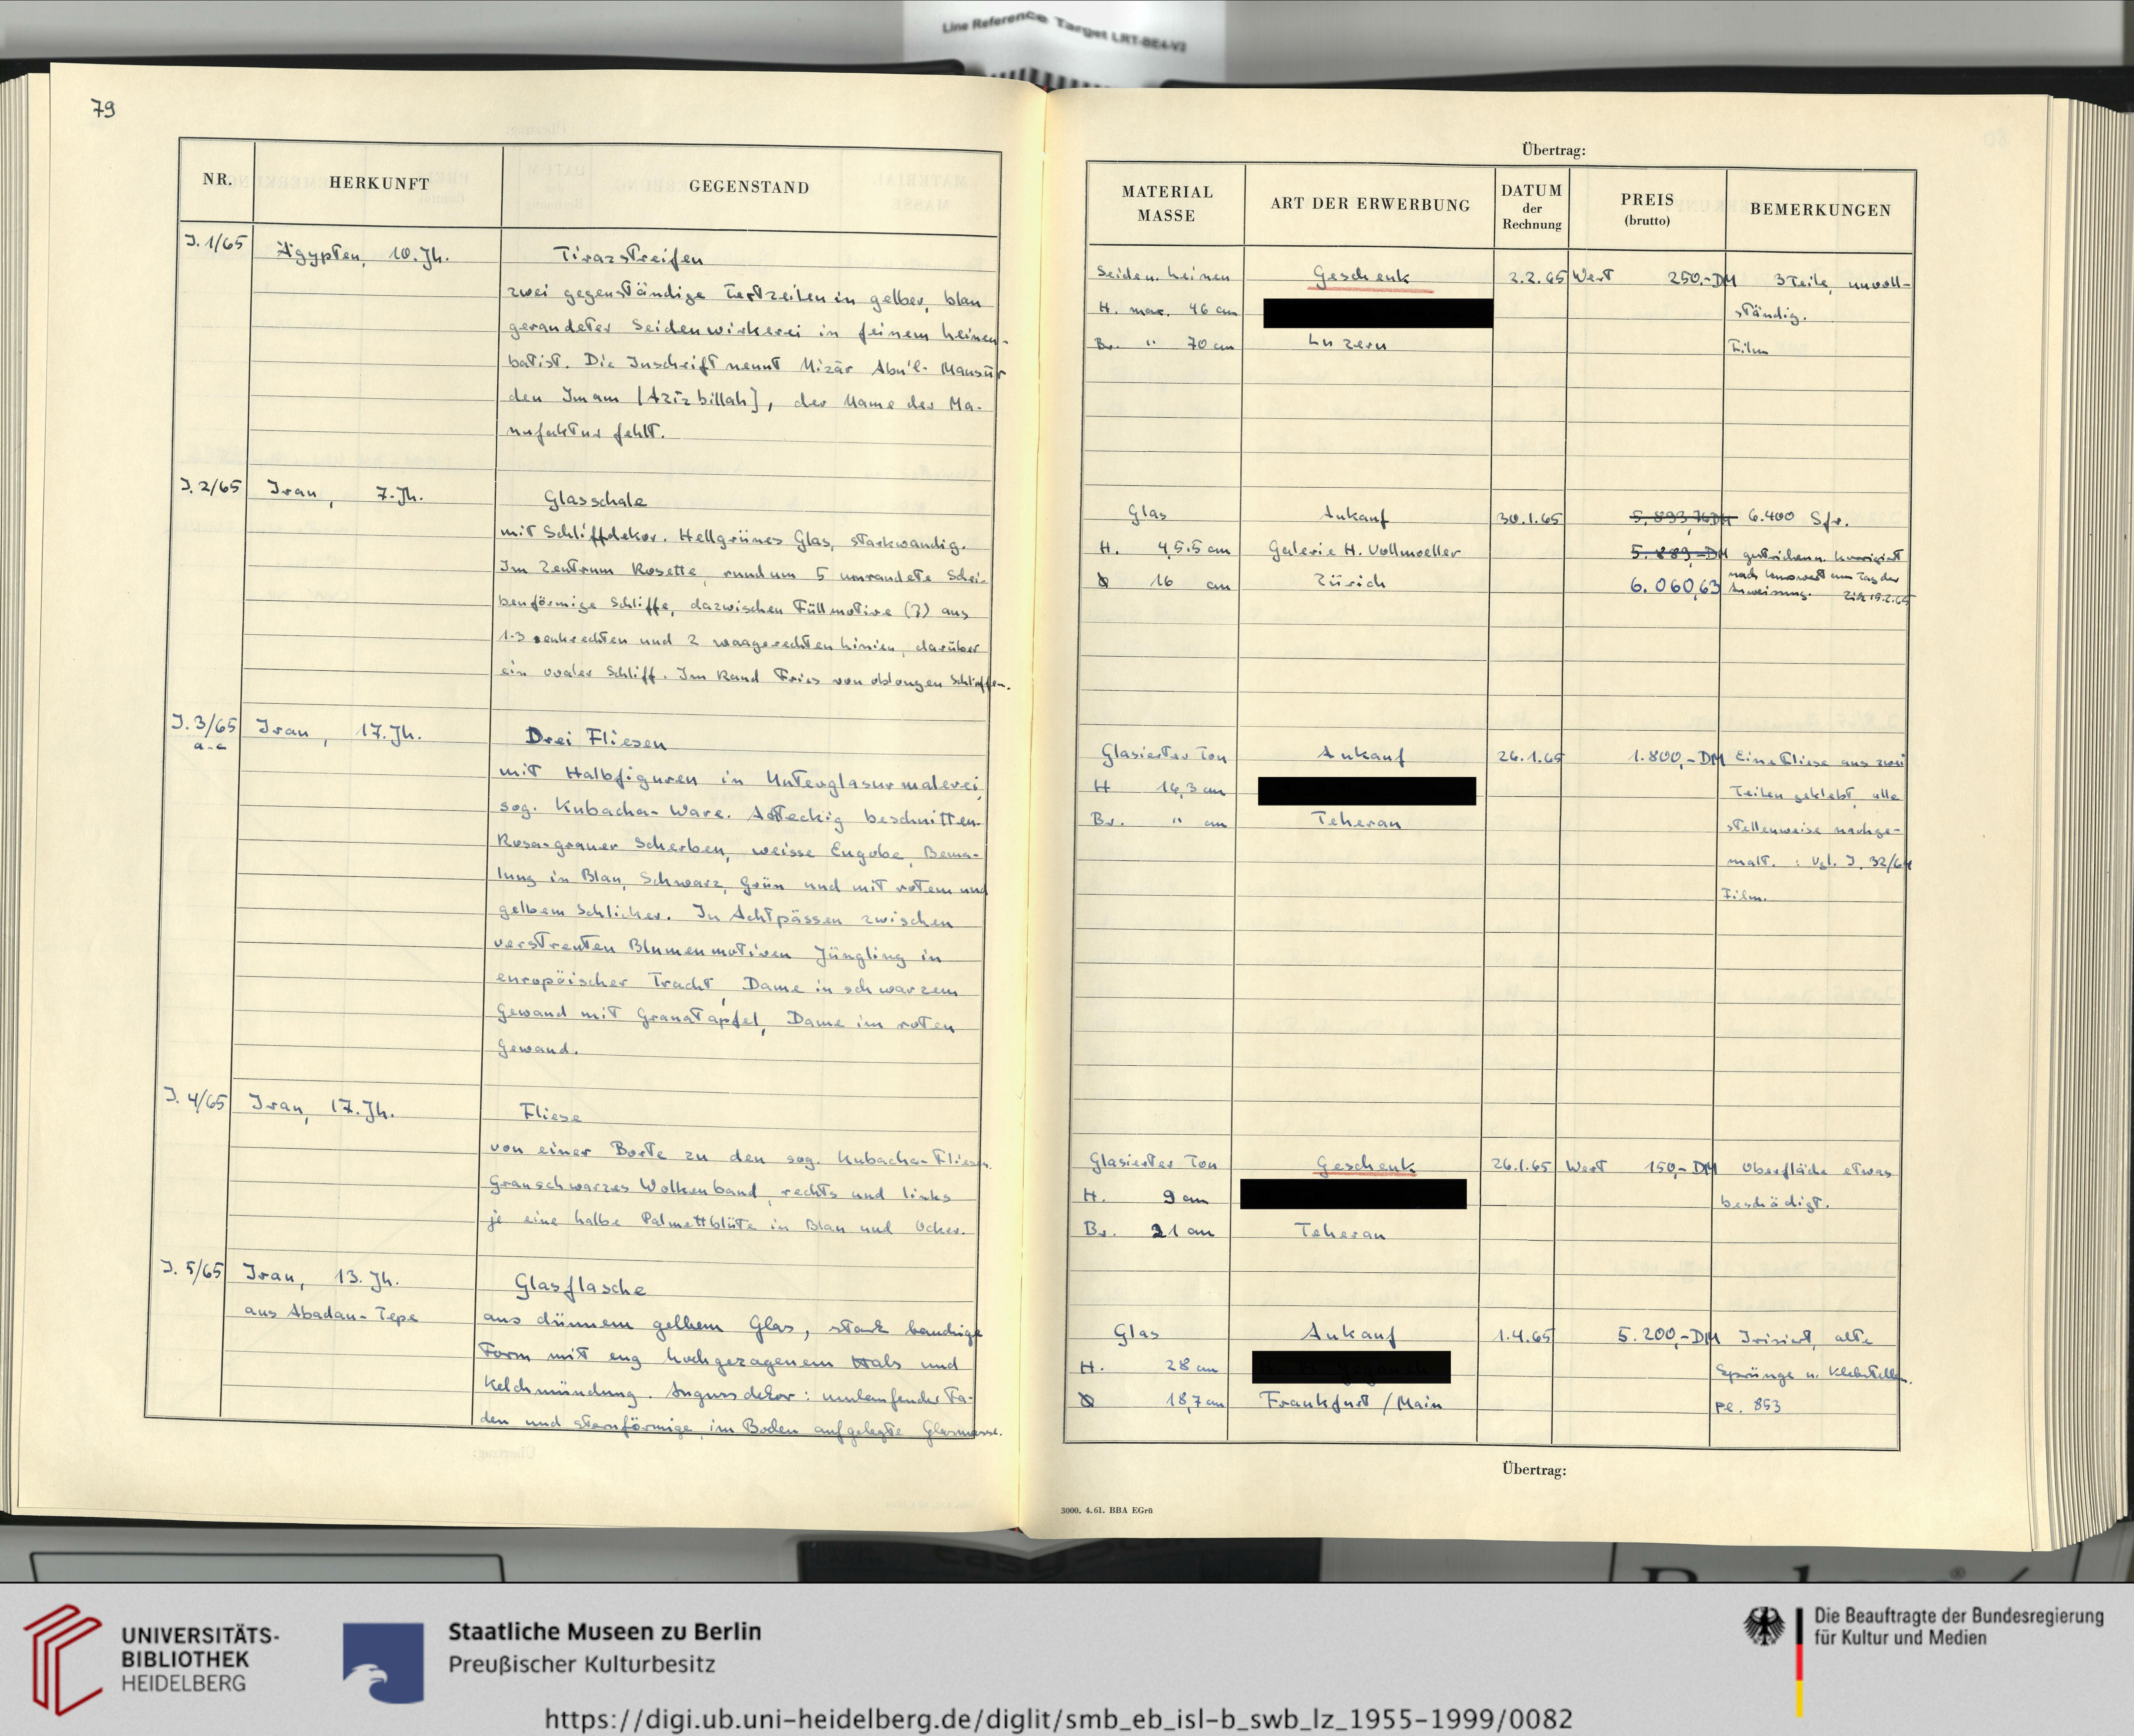 Line Reference Target LRT-BE4-V2
79
NR.
HERKUNFT
GEGENSTAND
J. 1/65
Ägypten, 10. Jh.
Tirazstreifen
zwei gegenständige Textzeilen in gelber, blau
gerandeter Seidenwirkerei in feinem Leinen-
batist. Die Inschrift nennt Nizār Abu'l-Mansūr
den Imam [Azīz billah], der Name der Ma-
nufaktur fehlt.
J. 2/65
Iran, 7. Jh.
Glasschale
mit Schliffdekor. Hellgrünes Glas, starkwandig.
Im Zentrum Rosette, rundum 5 umrandete Schei-
benförmige Schliffe, dazwischen Füllmotive (?) aus
1-3 senkrechten und 2 waagerechten Linien, darüber
ein ovaler Schliff. Im Rand Fries von oblongen Schliffen.
J. 3/65
a-c
Iran, 17. Jh.
Drei Fliesen
mit Halbfiguren in Unterglasurmalerei,
sog. Kubacha-Ware. Achteckig beschnitten.
Rosa-grauer Scherben, weisse Engobe, Bema-
lung in Blau, Schwarz, Grün und mit rotem und
gelbem Schlicker. In Achtpässen zwischen
verstreuten Blumenmotiven Jüngling in
europäischer Tracht, Dame in schwarzem
Gewand mit Granatapfel, Dame im roten
Gewand.
J. 4/65
Iran, 17. Jh.
Fliese
von einer Borte zu den sog. Kubacha-Fliesen.
Grauschwarzes Wolkenband, rechts und links
je eine halbe Palmettblüte in Blau und Ocker.
J. 5/65
Iran, 13. Jh.
aus Abadan-Tepe
Glasflasche
aus dünnem gelbem Glas, stark bauchige
Form mit eng hochgezogenem Hals und
Kelchmündung. Angussdekor: umlaufender Fa-
den und sternförmige, im Boden aufgelegte Glasmasse.
Übertrag:
MATERIAL
MASSE
ART DER ERWERBUNG
DATUM
der
Rechnung
PREIS
(brutto)
BEMERKUNGEN
Seide u. Leinen
H. max. 46 cm
Br. " 70 cm
Geschenk
Luzern
2.2.65
Wert 250.-DM
3 Teile, unvoll-
ständig.
Film
Glas
H. 4,5.5 cm
Ø 16 cm
Ankauf
Galerie H. Vollmoeller
Zürich
30.1.65
5.893,76DM
5.889,-DM
6.060,63
6.400 Sfr.
gestrichen u. korrigiert
nach Kurswert am Tag der
Anweisung. 19.2.65
Glasierter Ton
H 16,3 cm
Br. " cm
Ankauf
Teheran
26.1.65
1.800,-DM
Eine Fliese aus zwei
Teilen geklebt, alle
stellenweise nachge-
malt. : Vgl. J. 32/64
Film.
Glasierter Ton
H. 9 cm
Br. 21 cm
Geschenk
Teheran
26.1.65
Wert 150,-DM
Oberfläche etwas
beschädigt.
Glas
H. 28 cm
Ø 18,7 cm
Ankauf
Frankfurt/Main
1.4.65
5.200,-DM
Irisiert, alte
Sprünge u. Klebstellen.
Pl. 853
Übertrag:
3000. 4. 61. BBA EGrü
UNIVERSITÄTS-
BIBLIOTHEK
HEIDELBERG
Staatliche Museen zu Berlin
Preußischer Kulturbesitz
Die Beauftragte der Bundesregierung
für Kultur und Medien
https://digi.ub.uni-heidelberg.de/diglit/smb_eb_isl-b_swb_lz_1955-1999/0082